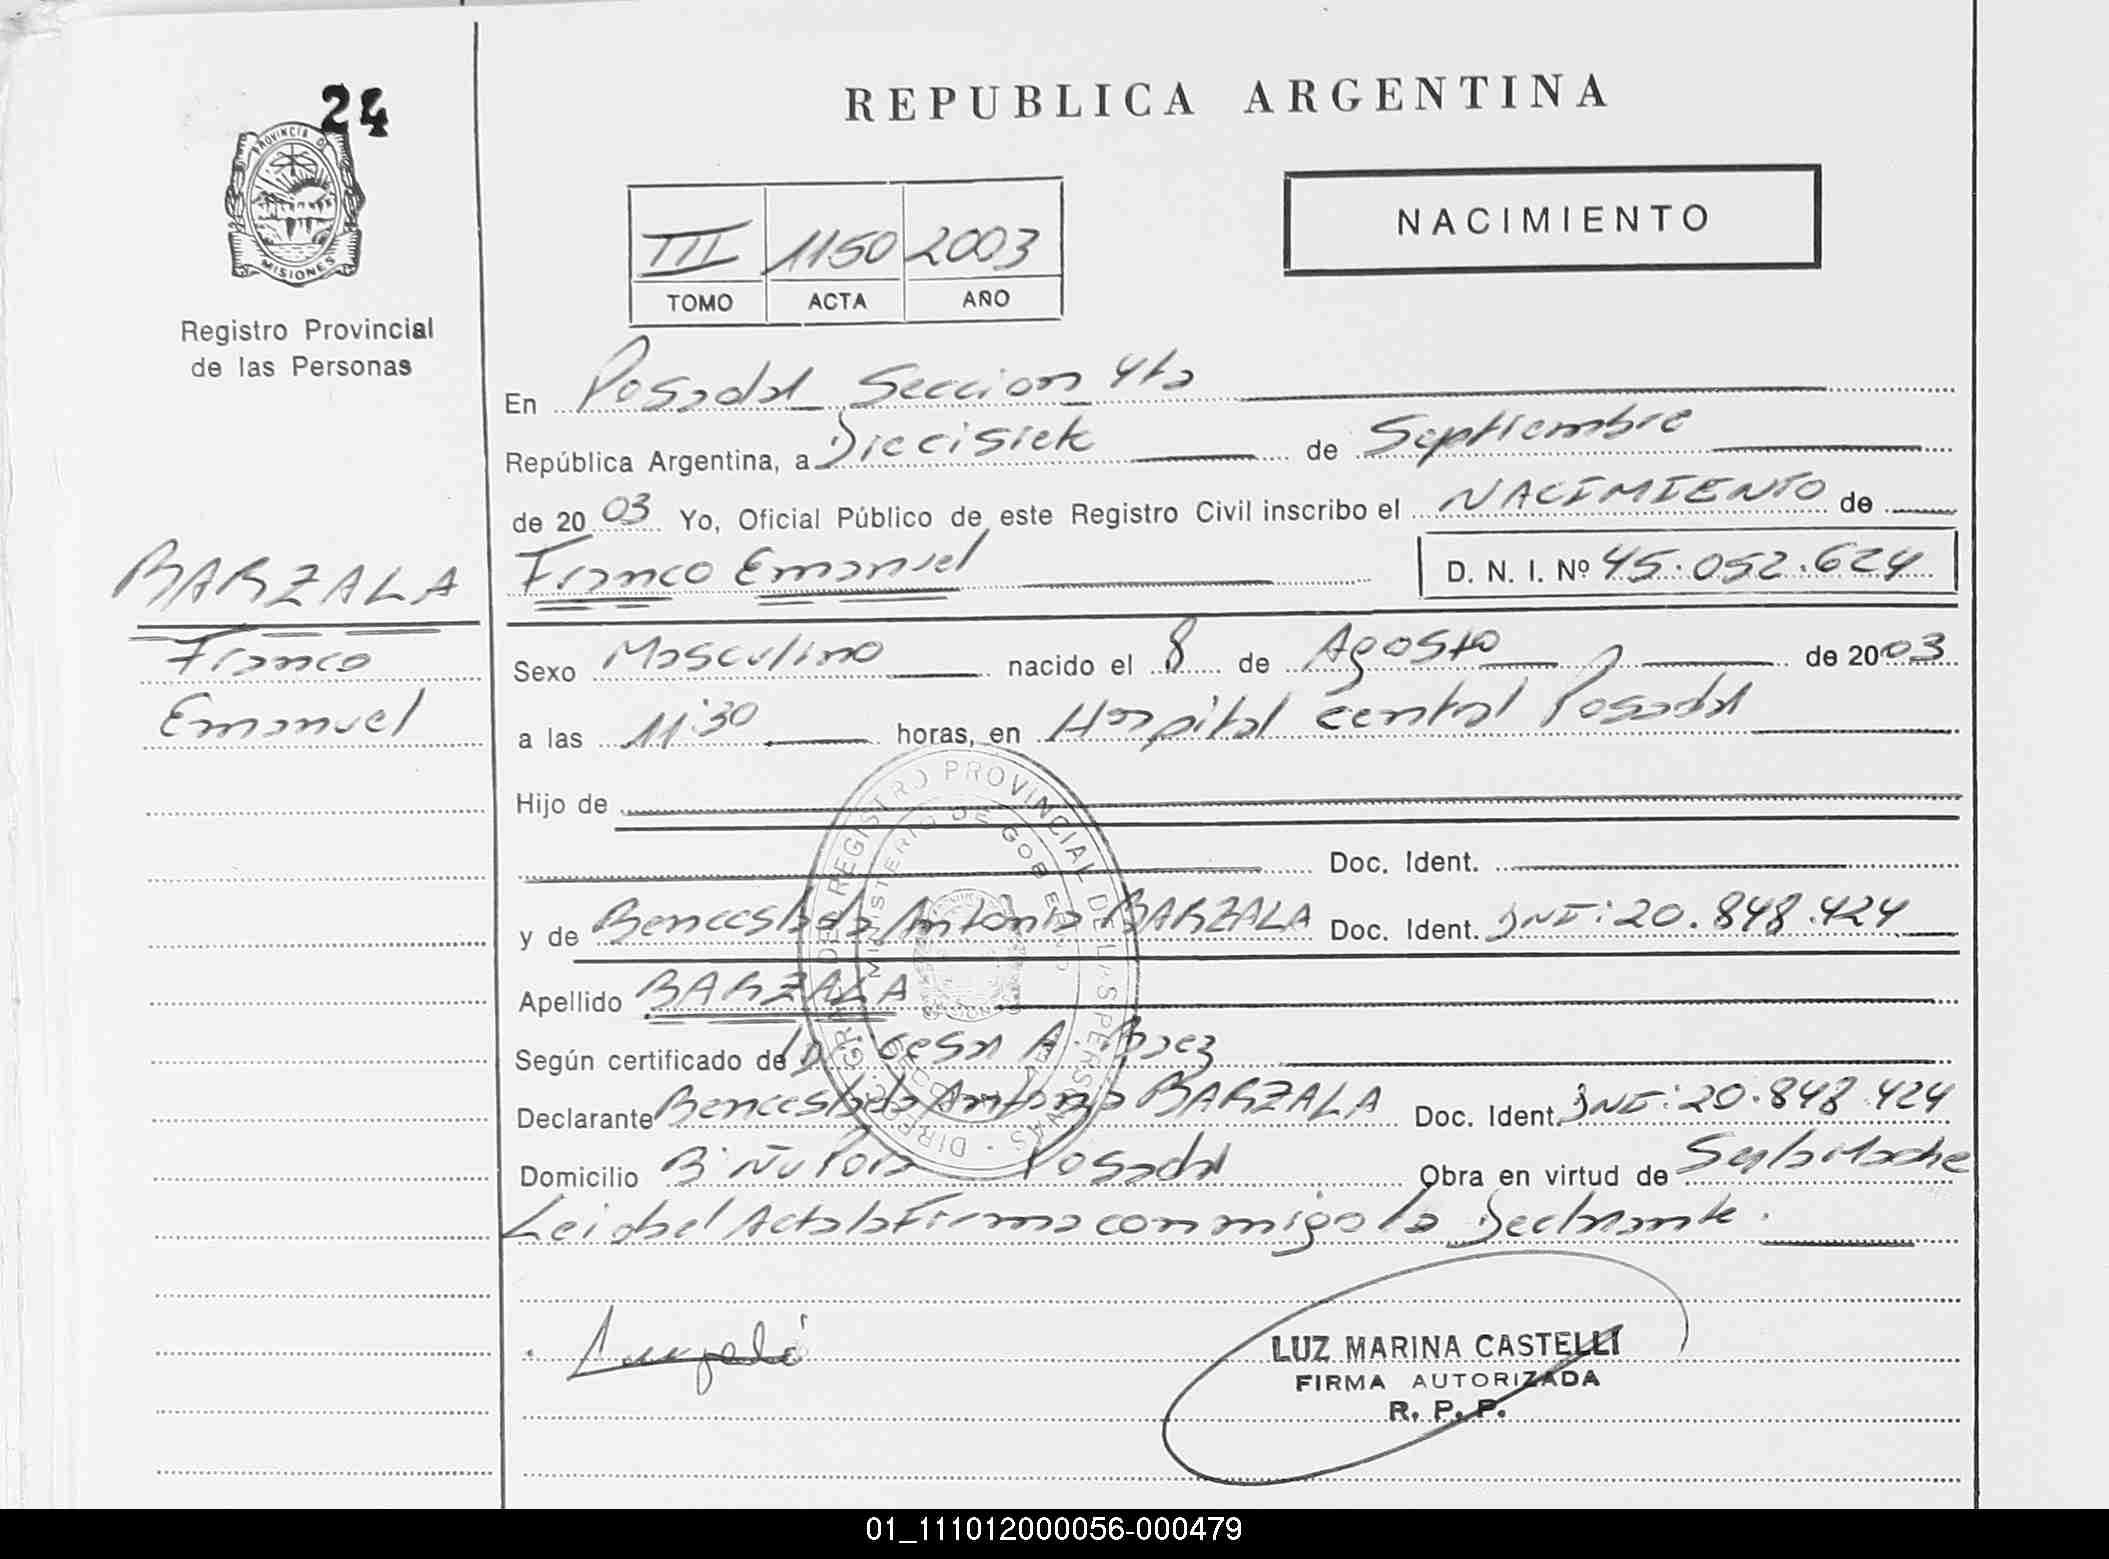 24
PROVINCIA DE
MISIONES
Registro Provincial
de las Personas
BARZALA
Franco
Emanuel
REPUBLICA ARGENTINA
NACIMIENTO
III 1150 2003
TOMO ACTA AÑO
En Posadas Seccion 4ta
República Argentina, a Diecisiete de Septiembre
de 2003 Yo, Oficial Público de este Registro Civil inscribo el NACIMIENTO de
Franco Emanuel D. N. I. Nº 45.052.624
Sexo Masculino nacido el 8 de Agosto de 2003
a las 11:30 horas, en Hospital Central Posadas
Hijo de
Doc. Ident.
y de Benceslada Antonia BARZALA Doc. Ident. DNI: 20.848.424
Apellido BARZALA
Según certificado de Dr Cesar A. Baez
Declarante Benceslada Antonia BARZALA Doc. Ident. DNI: 20.848.424
Domicilio Bº Ñu Pora Posadas Obra en virtud de Ser la Madre
Leida el Acta la Firma conmigo la Declarante.
LUZ MARINA CASTELLI
FIRMA AUTORIZADA
R. P. P.
01_111012000056-000479